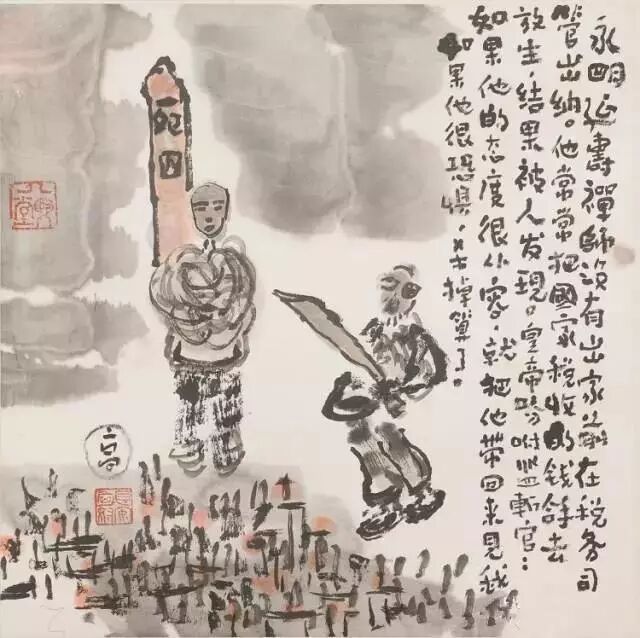 永明延壽禪師沒有出家前在税务司
管出纳。他常常把國家税收的钱拿去
放生,结果被人发现。皇帝吩咐监斬官:
如果他的态度很从容,就把他带回来见我
如果他很恐惧,杀掉算了。
死囚